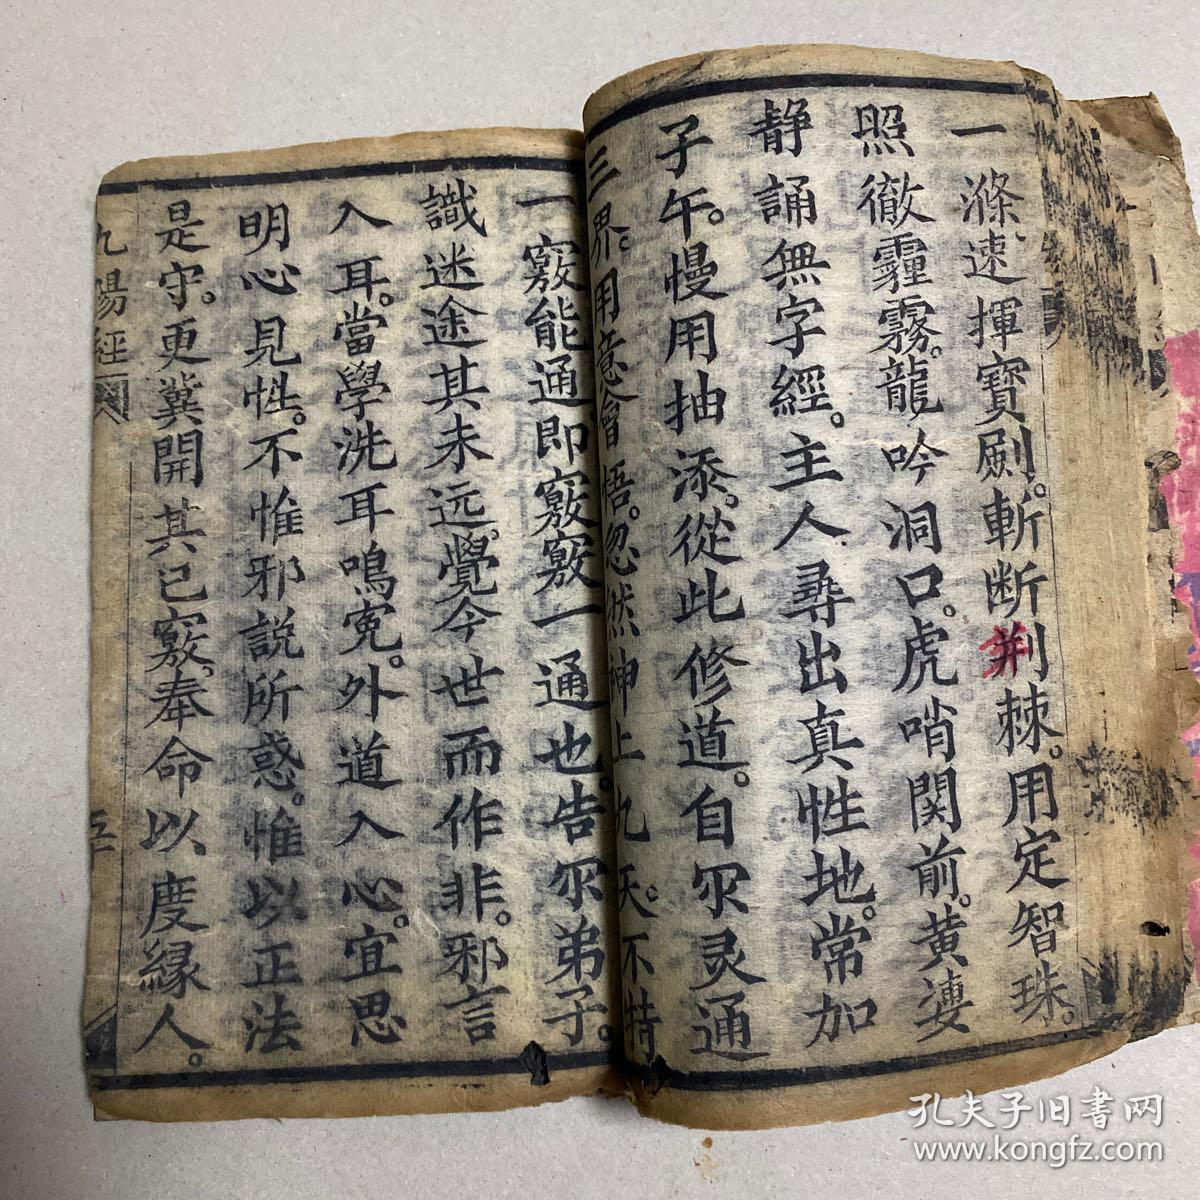 一滌速揮寶劍。斬断荆棘。用定智珠。
照徹霾霧。龍吟洞口。虎哨関前。黄淒
静誦無字經。主人尋出真性地。常加
子午。慢用抽添。從此修道。自尔灵通
三界。用意會悟。忽然神上九天。不特
一竅能通即竅竅一通也。告尔弟子。
識迷途其未远。覺今世而作非。邪言
入耳。當學洗耳鳴寃。外道入心。宜思
明心見性。不惟邪説所惑。惟以正法
是守。更冀開其已竅。奉命以度縁人。
九陽經
五
孔夫子旧書网
www.kongfz.com